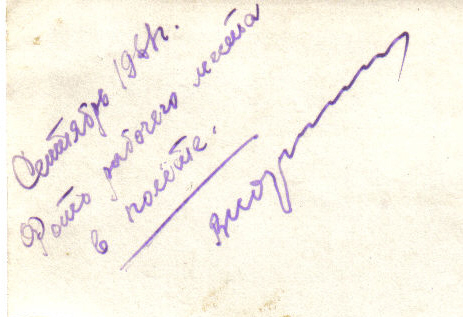 Сентябрь 1961г.
Фото рабочего места
в полёте.